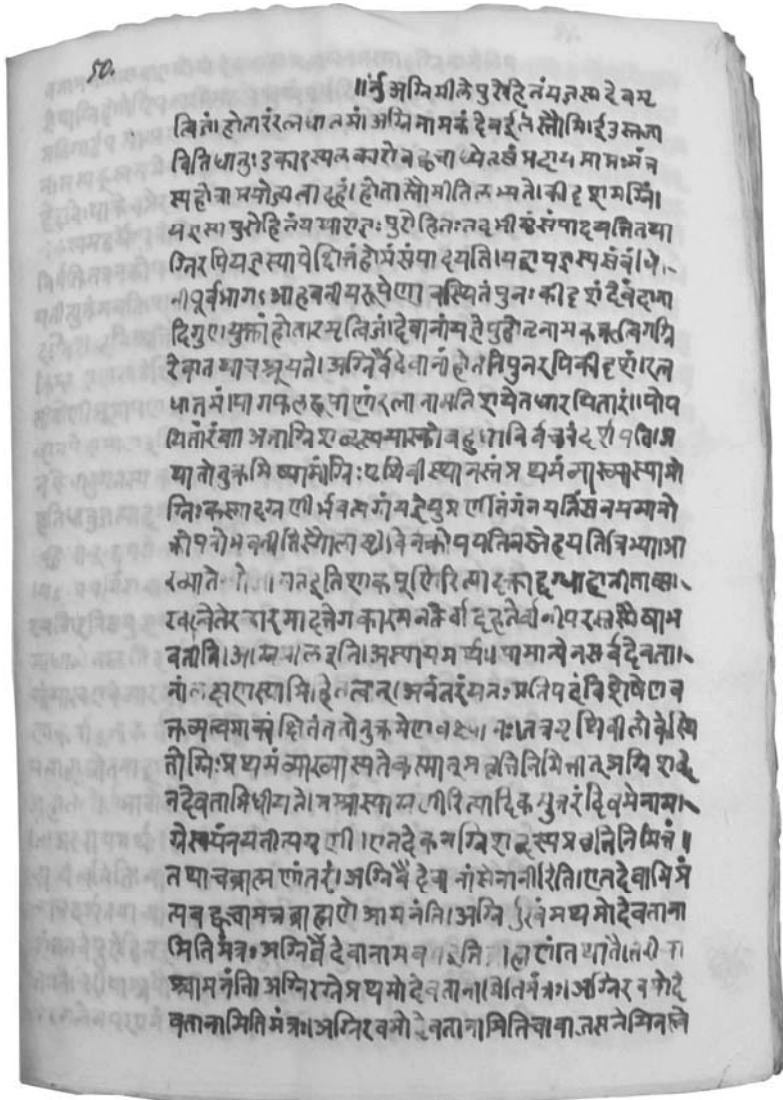 50.
॥ अग्निमीले पुरोहितं यज्ञस्य देवमृ
त्विजं होतारं रत्नधातमं अग्निनामकं देवं ईले स्तौमि। ईड स्तुता
विति धातुः डकारस्य लकारो
स्य होत्रा प्रयोज्यत्वादहं होता स्तौमीति लभ्यते। कीदृशमग्निं।
यज्ञस्य पुरोहितं यथा राज्ञः पुरोहितः तदभीष्टं संपादयति तथा
ग्निरपि यज्ञस्यापेक्षितं होमं संपादयति। यद्वा यज्ञस्य संबंधि
नी पूर्वभागे आहवनीयरूपेणावस्थितं पुनः कीदृशं देवं दाना
दिगुणयुक्तं होतारमृत्विजं। देवानां यज्ञेषु होतृनामक ऋत्विगग्नि
रेव तथा च श्रूयते। अग्निर्वै देवानां होतेति पुनरपि कीदृशं। रत्न
धातमं। यागफलरूपाणां रत्नानामतिशयेन धारयितारं। पोष
यितारं वा। अत्राग्निशब्दस्य यास्को बहुधा निर्वचनं दर्शयति। अ
थातोनुक्रमिष्यामोग्निः पृथिवीस्थानस्तं प्रथमं व्याख्यास्यामो
ग्निः कस्मादग्रणीर्भवत्यग्रं यज्ञेषु प्रणीयतेंगं नयति सन्नममानो
क्नोपनो भवतीति स्थौलाष्ठीविर्न क्नोपयति न स्नेहयति त्रिभ्य आ
ख्यातेभ्यो जायत इति शाकपूणिरितादक्ताद्दग्धाद्वा नीतात्स
खल्वेतेरकारमादत्ते गकारमनक्तेर्वा दहतेर्वा नीः परस्तस्यैषा भ
वतीति। अग्निमीळ इति। अस्यायमर्थः। सामान्येन सर्वदेवता
नां लक्षणस्याभिहितत्वात्। अनंतरं यतः प्रतिपदं विशेषेण व
क्तव्यत्वमाकांक्षितं ततोनुक्रमेण वक्ष्यामः। तत्र पृथिवीलोके स्थि
तोग्निः प्रथमं व्याख्यास्यते कस्मात्प्रवृत्तिनिमित्तात् अग्निशब्दे
न देवताभिधीयते। तस्याग्रणीरित्यादिकमुत्तरं
ग्रे स्वयं नयतीत्यग्रणी। एतदेकमग्निशब्दस्य प्रवृत्तिनिमित्तं।
तथा च ब्राह्मणांतरं। अग्निर्वै देवानां सेनानीरिति। एतदेवाभिप्रे
त्य बह्वृचा मंत्रब्राह्मणे आमनंति। अग्निर्मुखं प्रथमो देवताना
मिति मंत्रः अग्निर्वै देवानामवम इति ब्राह्मणं तथा तैत्तिरीया
श्चामनंति। अग्निरग्रे प्रथमो देवतानामिति मंत्रः। अग्निरवमो दे
वतानामिति मंत्रः। अग्निरवमो देवतानामिति च वाजसनेयिनस्त्वे